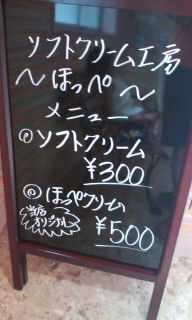 ソフトクリーム工房
～ほっぺ～
メニュー
◎ソフトクリーム
¥300
◎ほっぺクリーム
当店オリジナル
¥500